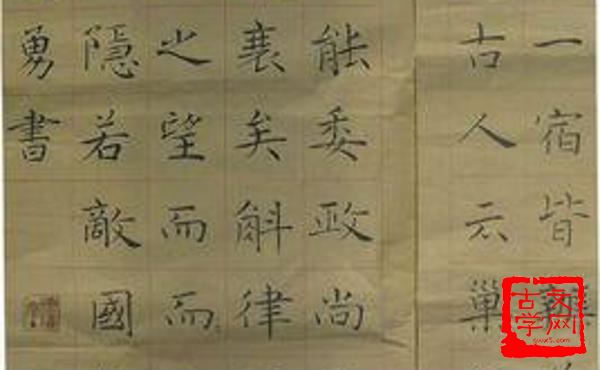 一宿皆
古人云巢
能委政尚
襄矣斛律
之望而而
隱若敵國
勇書
古文学网
gwx5.com